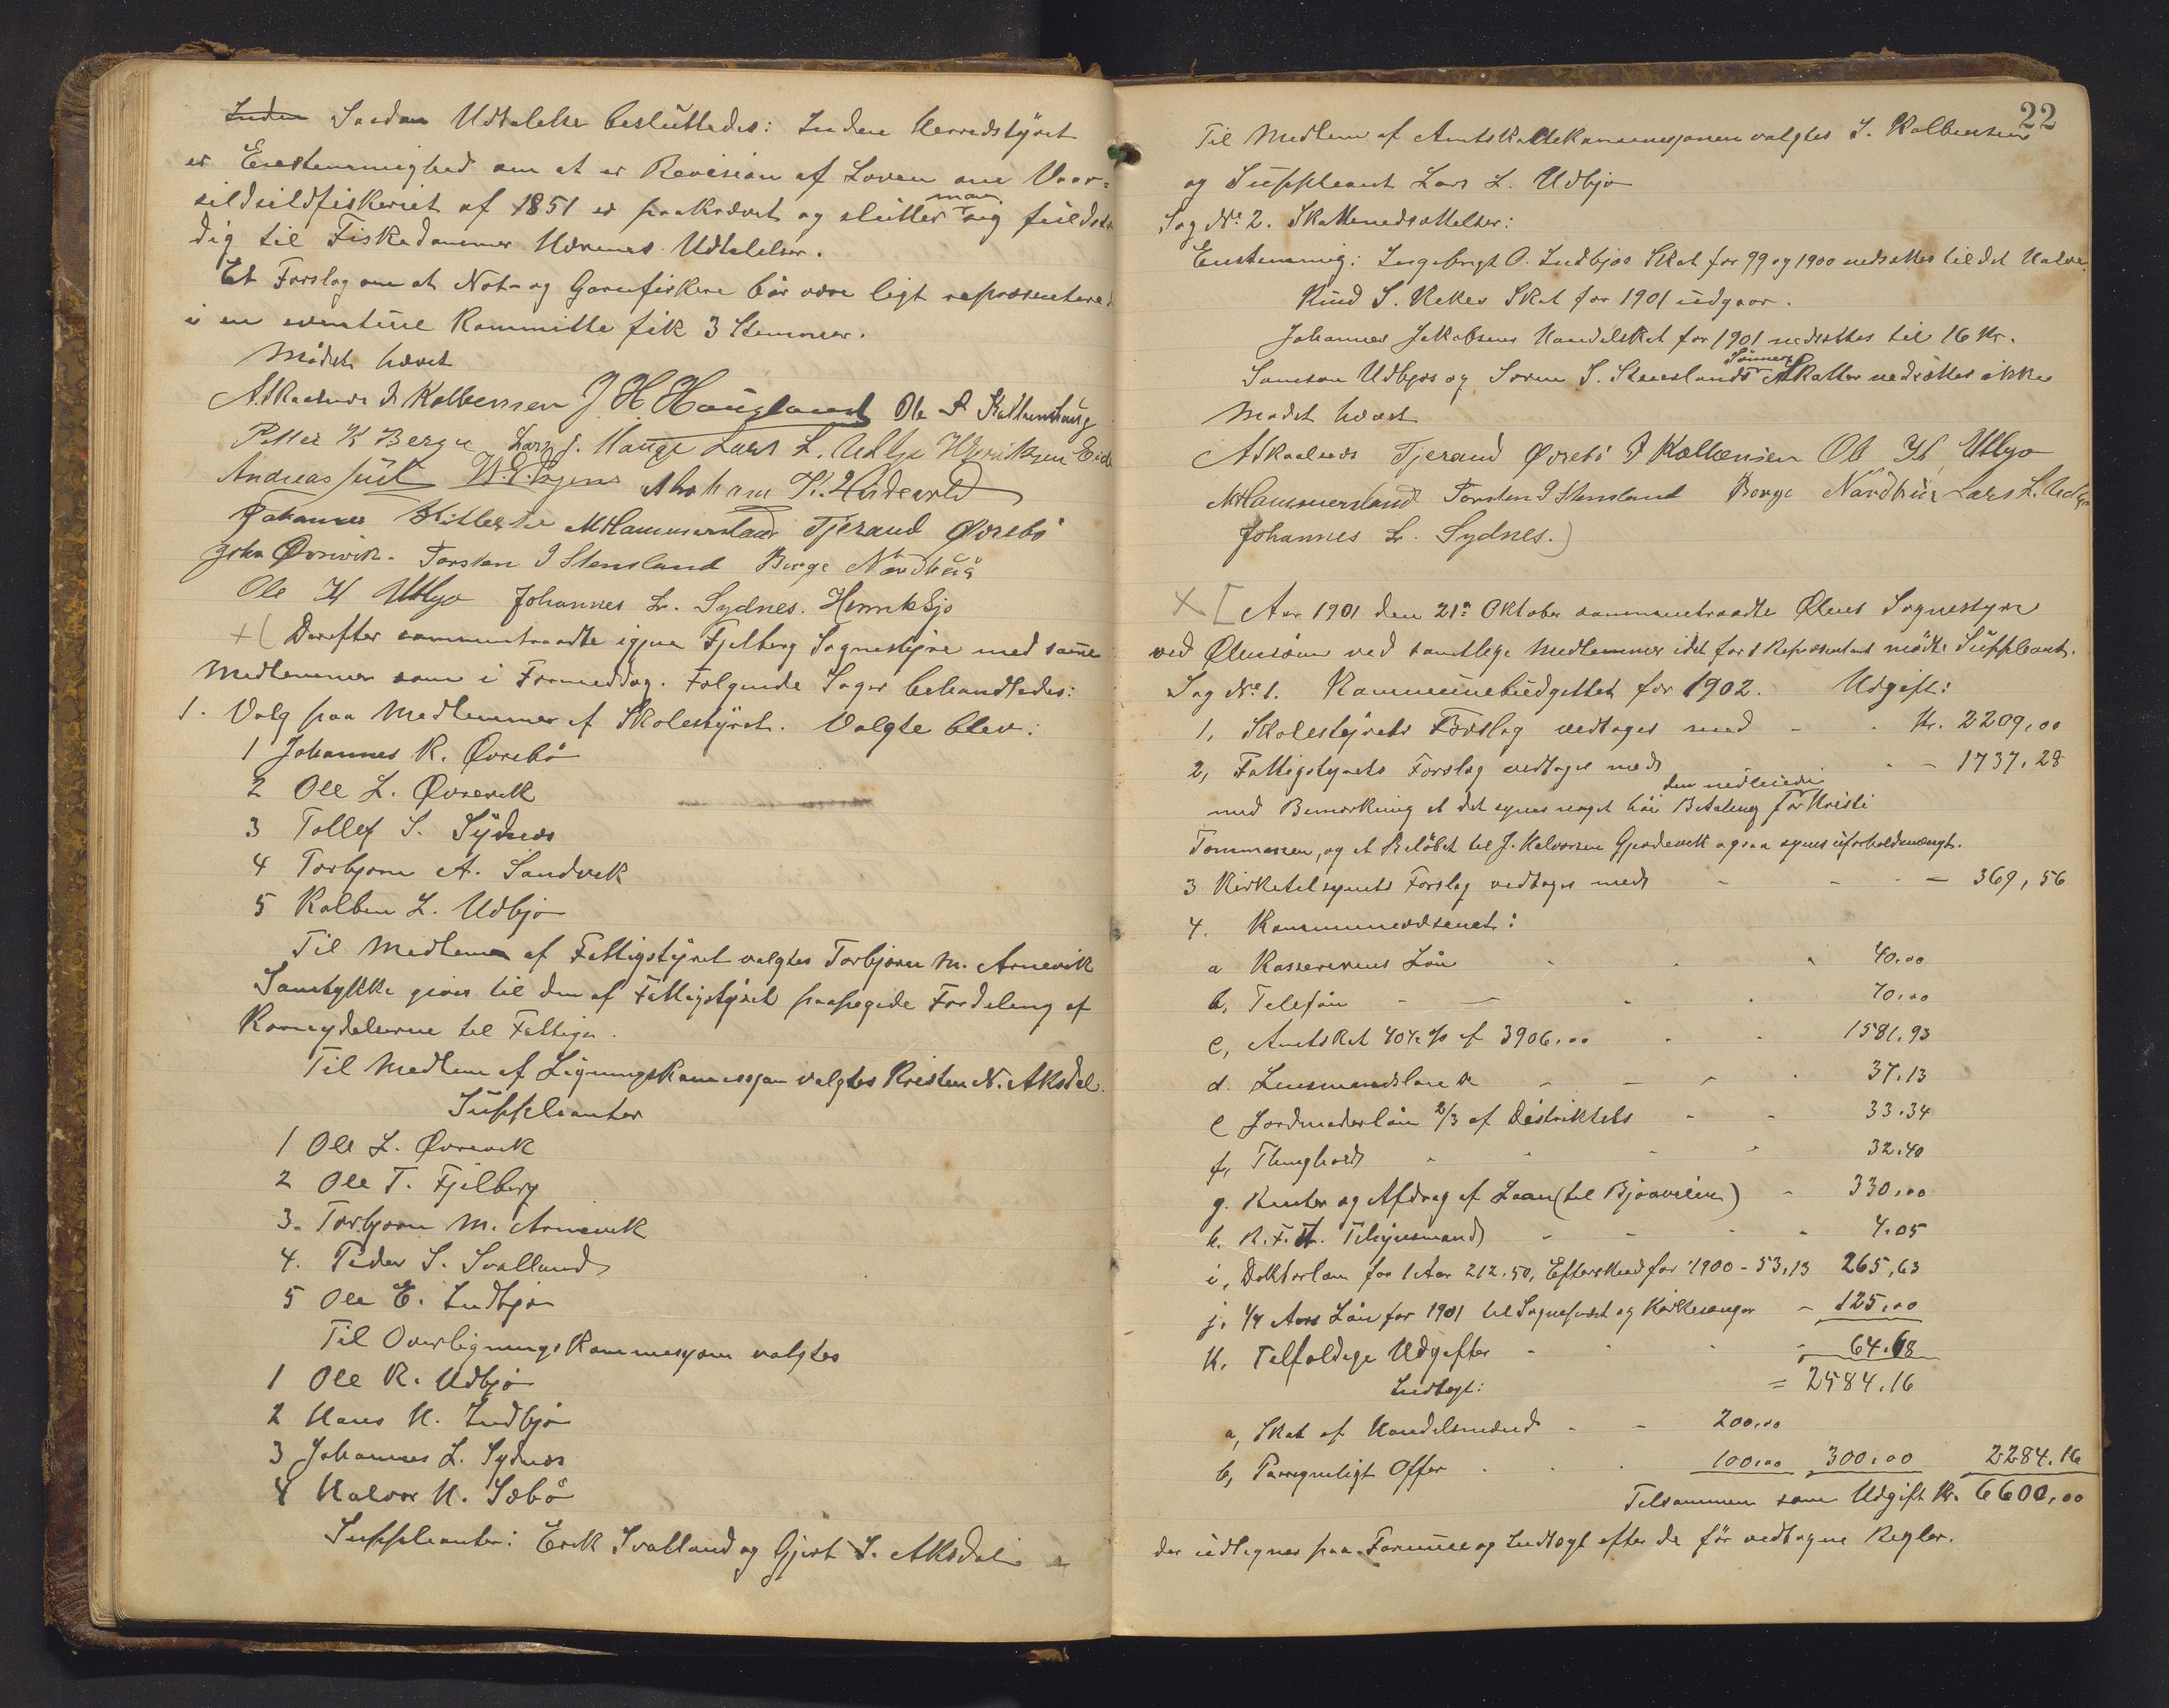 Inden Saadan Udtalelse besluttedes: Inden Herredstyret
er Enstemmighed om at er Revision af Loven om Vaar-
sildsildfiskeriet af 1851 er paakrævet og slutter man sig fuldstæ
dig til Fiskedommer Udtalelser.
Et Forslag om at Not- og Garnfiskere bør være ligt repræsenteret
i en eventuel Kommitte fik 3 Stemmer.
Mødet hævet
A. Skaalnes S Kolbensen J H Haugland Ole S
Petter K Berge Lars J. Hauge Lars L. Udbjø H Henriksen Eide
Andreas Juul Abraham K.
Johannes M Hammersland Tjerand Øvrebö
John Øvrevik. Torsten I Stensland Børge Nordhuus
Ole H Utbjo Johannes L. Sydnes. Henrik Sjo
Derefter sammentraadte igjen Fjelberg Sognestyre med samme
Medlemmer som i Formiddag. Følgende Sager behandledes:
1. Valg paa Medlemmer af Skolestyret. Valgte blev:
1 Johannes R. Øvrebø
2 Ole L. Øvrevik
3 Tollef S. Sydnes
4 Torbjørn A. Sandvik
5 Kolben L. Udbjø
Til Medlem af Fattigstyret valgtes Torbjørn M. Arnevik
Samtykke gives til den af Fattigstyret paapegede Fordeling af
Kornydelserne til Fattige.
Til Medlem af Ligningskommissjon valgtes Kristen N. Aksdal.
Suppleanter
1 Ole L. Øvrevik
2 Ole T. Fjelberg
3. Torbjørn M. Arnevik
4. Peder S. Svalland
5 Ole E. Indbjø
Til Overligningskommisjon valgtes
1 Ole K. Udbjø
2 Hans H. Indbjø
3 Johannes L. Sydnes
4 Halvor H. Sæbö
Suppleanter: Erik Svalland og Gjert S. Aksdal
22
Til Medlem af Amtskattekommisjonen valgtes S. Kolbensen
og Suppleant Lars L. Udbjø
Sag No. 2. Skattenedsættelser:
Enstemmig: Ingebrigt O. Indbjos Skat for 99 og 1900 nedsættes til det Halve.
Knud S. Skat for 1901 udgaar.
Johannes Jakobsens Handelskat for 1901 nedsættes til 16 Kr.
Samson Udbjos og Søren S. Stenslands Sønners Skatter nedsættes ikke
Mødet hævet
A Skaalnes Tjerand Øvrebö S Kolbensen Ole H, Utbjo
M Hammersland Torsten I Stensland Børge Nordhuus Lars L. Udbjø
Johannes L. Sydnes.)
Aar 1901 den 21de Oktober sammentraadte Ølens Sognestyre
ved Ølensøen ved samtlige Medlemmer idet for 1 Repræsentant mødte Suppleant.
Sag No. 1. Kommunebudgettet for 1902. Udgift:
1, Skolestyrets Forslag vedtages med - - Kr. 2209,00
2, Fattigstyrets Forslag vedtages med - - 1737,28
med Bemærkning at det synes noget høi Betaling for den Kristi
Tommasen, og at Beløbet til J. Halvorsen Gjerdevik ogsaa synes uforholdmæsigt.
3 Kirketilsynets Forslag vedtages med - - - 369,56
4. Kommunevæsenet:
a Kassererens Løn 40.00
b, Telefon - - 70,00
c, Amtskat 40½ % af 3906,00 1581.93
d. Lensmandsløn - - - 37.13
e Jordmoderløn 2/3 af Distriktets - - 33.34
f, Thinghold 32.40
g. Renter og Afdrag af Laan (til Bjoaveien) - 330,00
h. Tilsynsmand - - 4.05
i, Doktorløn for 1 Aar 212.50, Efterskud for 1900 - 53,13 265,63
j. ¼ Aars Løn for 1901 til Sogneprest og Kirkesanger - 125,00
k. Tilfældige Udgifter - 64.68
= 2584.16
Indtægt:
a, Skat af Handelsmænd - - 200,00
b, Offer 100,00 300,00 2284.16
Tilsammen som Udgift Kr. 6600,00
der udlignes paa Formue og Indtægt efter de før vedtagne Regler.